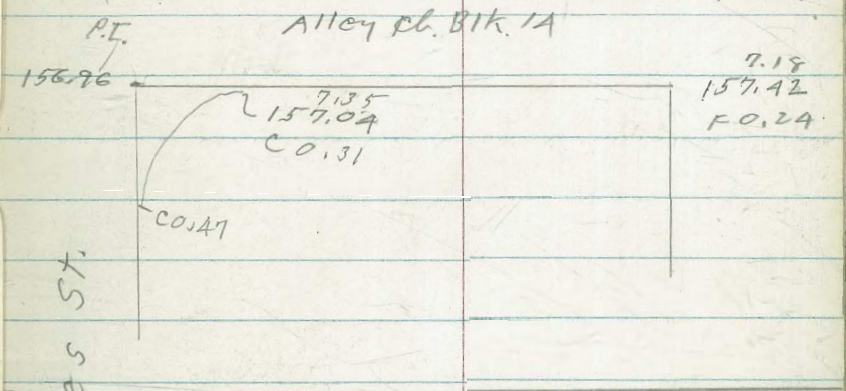 Alley Blk. 14
P.I.
156.96
7.35
157.04
C 0.31
7.18
157.42
F 0.24
C0.47
St.